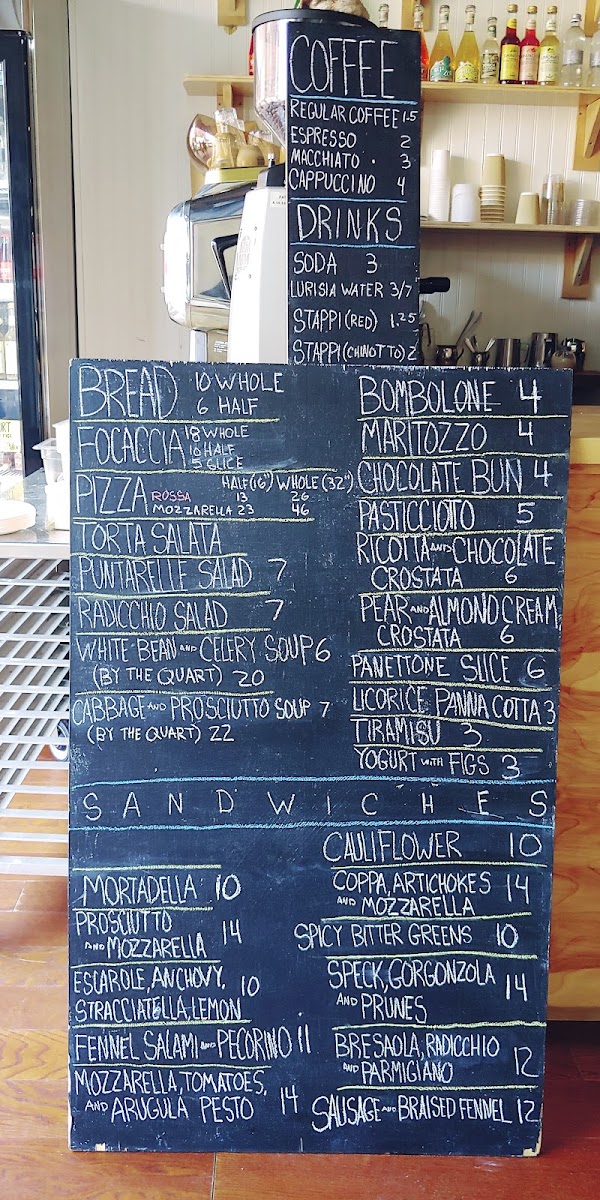 COFFEE
REGULAR COFFEE 1.5
ESPRESSO 2
MACCHIATO 3
CAPPUCCINO 4
DRINKS
SODA 3
LURISIA WATER 3/7
STAPPI (RED) 1.25
STAPPI (CHINOTTO) 2
BREAD 10 WHOLE
6 HALF
FOCACCIA 18 WHOLE
10 HALF
5 SLICE
PIZZA HALF (16") WHOLE (32")
ROSSA 13 26
MOZZARELLA 23 46
TORTA SALATA
PUNTARELLE SALAD 7
RADICCHIO SALAD 7
WHITE BEAN AND CELERY SOUP 6
(BY THE QUART) 20
CABBAGE AND PROSCIUTTO SOUP 7
(BY THE QUART) 22
BOMBOLONE 4
MARITOZZO 4
CHOCOLATE BUN 4
PASTICCIOTTO 5
RICOTTA AND CHOCOLATE
CROSTATA 6
PEAR AND ALMOND CREAM
CROSTATA 6
PANETTONE SLICE 6
LICORICE PANNA COTTA 3
TIRAMISU 3
YOGURT WITH FIGS 3
SANDWICHES
MORTADELLA 10
PROSCIUTTO
AND MOZZARELLA 14
ESCAROLE, ANCHOVY,
STRACCIATELLA, LEMON 10
FENNEL SALAMI AND PECORINO 11
MOZZARELLA, TOMATOES,
AND ARUGULA PESTO 14
CAULIFLOWER 10
COPPA, ARTICHOKES
AND MOZZARELLA 14
SPICY BITTER GREENS 10
SPECK, GORGONZOLA
AND PRUNES 14
BRESAOLA, RADICCHIO
AND PARMIGIANO 12
SAUSAGE AND BRAISED FENNEL 12